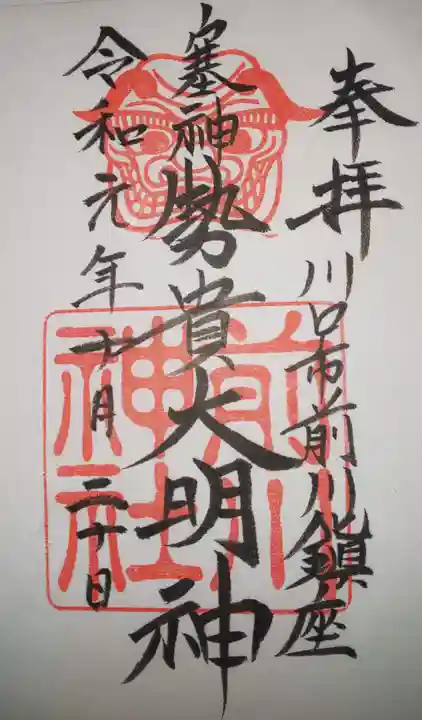 奉拝
川口市前川鎮座
塞神勢貴大明神
令和元年十月二十日
前川
神社